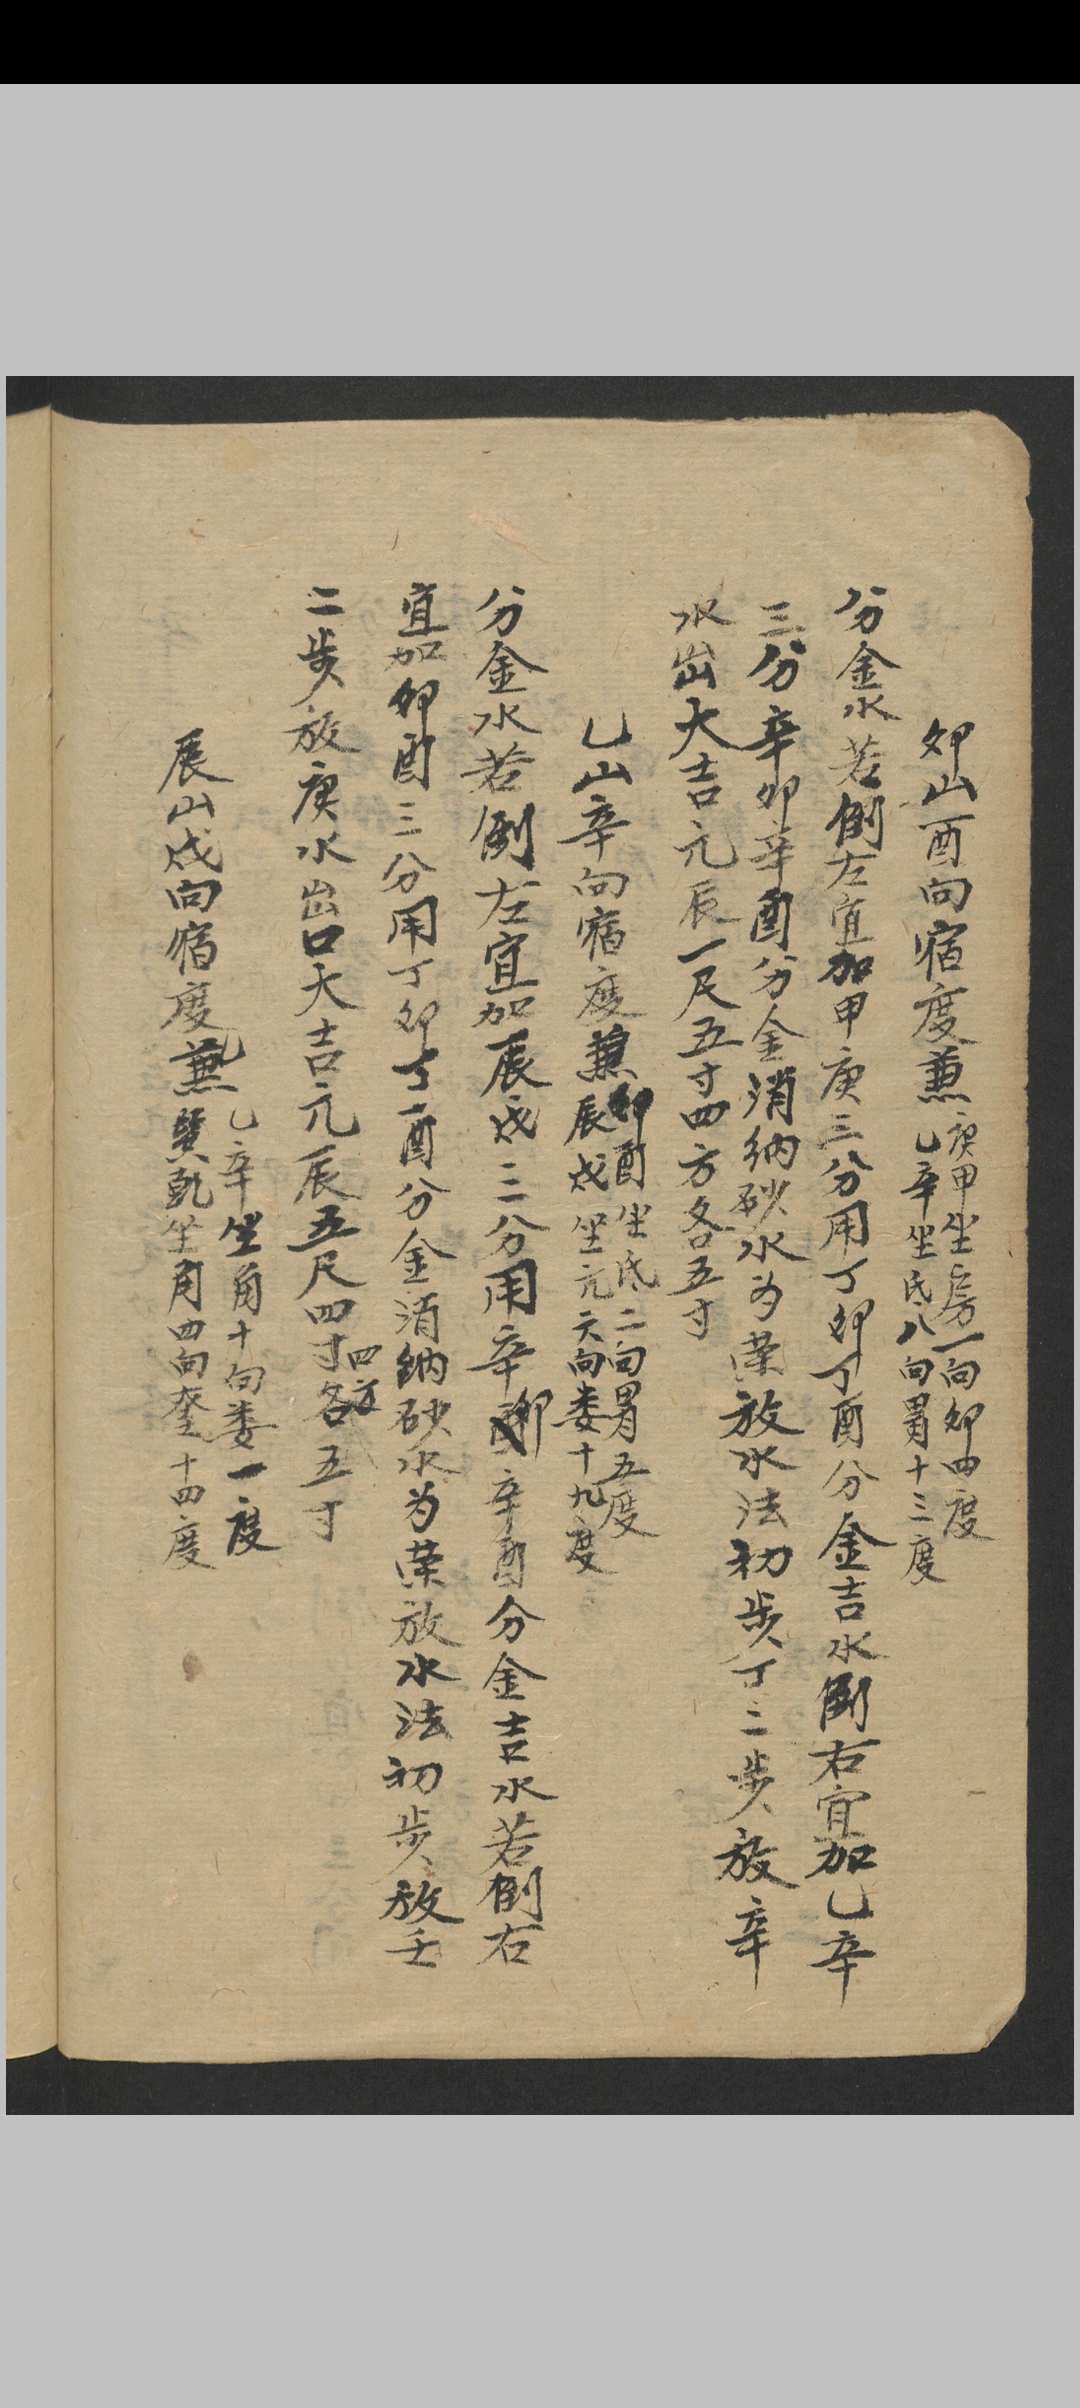 卯山酉向宿度兼庚甲坐房一向卯四度
乙辛坐氐八向胃十三度
分金水若倒左宜加甲庚三分用丁卯丁酉分金吉水倒右宜加乙辛
三分辛卯辛酉分金消纳砂水为荣放水法初步丁二步放辛
水出大吉元辰一尺五寸四方各五寸
乙山辛向宿度兼卯酉坐氐二向胃五度
辰戌坐亢六向娄十九度
分金水若倒左宜加辰戌三分用辛卯辛酉分金吉水若倒右
宜加卯酉三分用丁卯丁酉分金消纳砂水为荣放水法初步放壬
二步放庚水出口大吉元辰五尺四寸四方各五寸
辰山戌向宿度兼乙辛坐角十向娄一度
巽乾坐角四向奎十四度